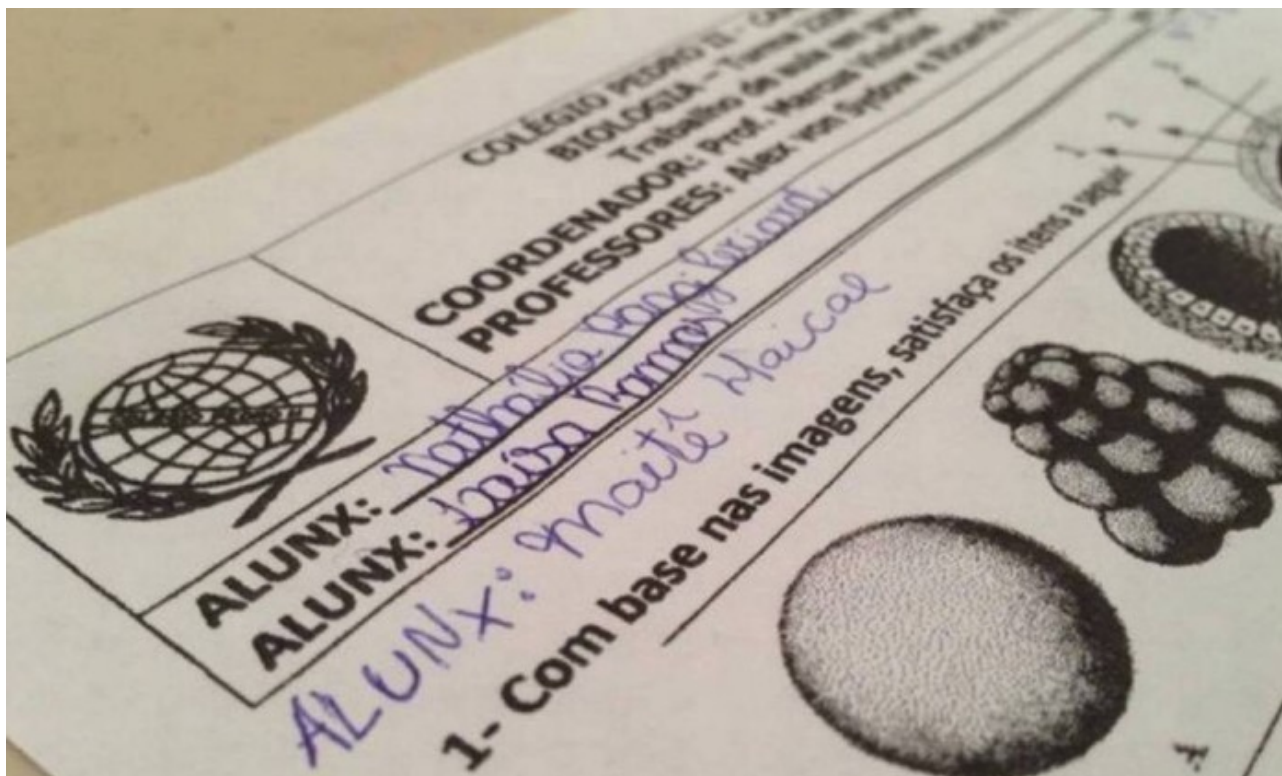 COLÉGIO PEDRO II -
BIOLOGIA - Turma
Trabalho de aula em
COORDENADOR: Prof. Marcus Vinicius
PROFESSORES: Alex von Sydow e Ricardo
ALUNX: Nathália
ALUNX: Ramos
ALUNX: Maitê Marcal
1- Com base nas imagens, satisfaça os itens a seguir
1
2
3